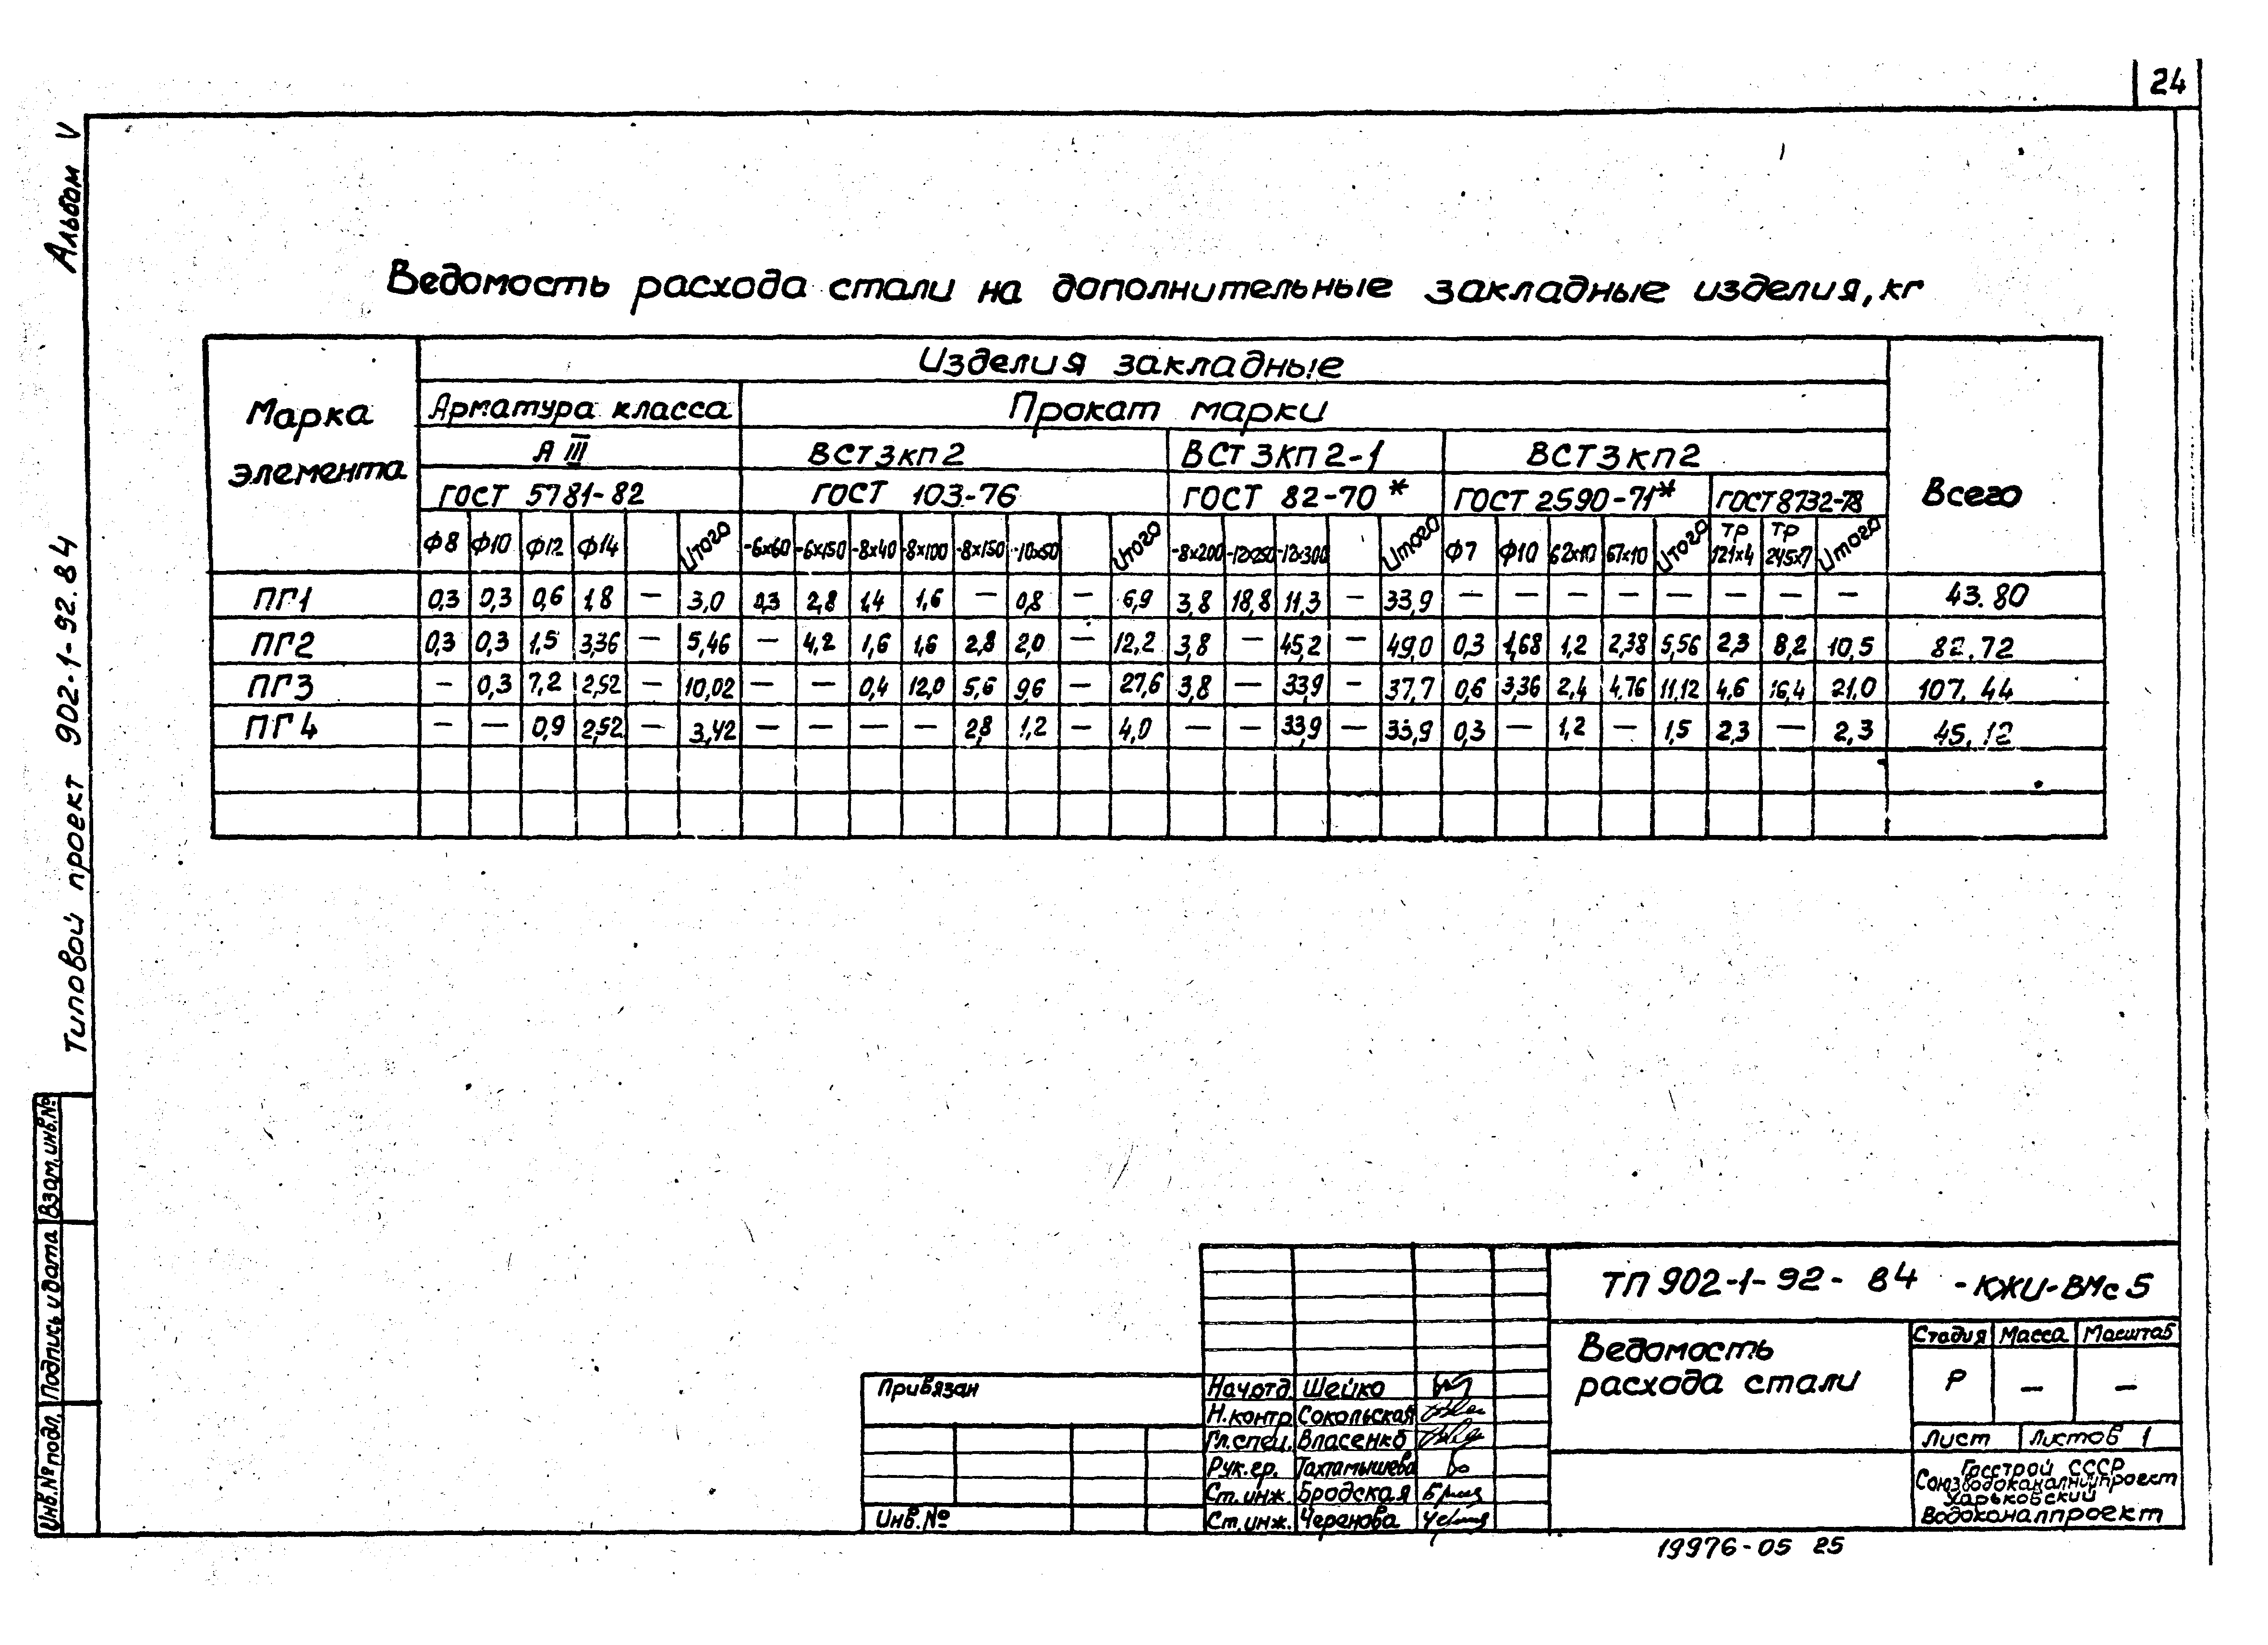 24
Альбом V
Типовой проект 902-1-92.84
Ведомость расхода стали на дополнительные закладные изделия, кг
Марка элемента
Изделия закладные
Всего
Арматура класса
Прокат марки
А III
ВСТ3кп2
ВСТ3кп2-1
ВСТ3кп2
ГОСТ 5781-82
ГОСТ 103-76
ГОСТ 82-70*
ГОСТ 2590-71*
ГОСТ 8732-78
Ф8 Ф10 Ф12 Ф14 Итого -6х60 -6х150 -8х40 -8х100 -8х150 -10х50 Итого -8х200 -12х250 -12х300 Итого Ф7 Ф10 62х10 67х10 Итого Тр 121х4 Тр 245х7 Итого
ПГ1 0,3 0,3 0,6 1,8 — 3,0 0,3 2,8 1,4 1,6 — 0,8 — 6,9 3,8 18,8 11,3 — 33,9 — — — — — — — — 43.80
ПГ2 0,3 0,3 1,5 3,36 — 5,46 — 4,2 1,6 1,6 2,8 2,0 — 12,2 3,8 — 45,2 — 49,0 0,3 1,68 1,2 2,38 5,56 2,3 8,2 10,5 82.72
ПГ3 — 0,3 7,2 2,52 — 10,02 — — 0,4 12,0 5,6 9,6 — 27,6 3,8 — 33,9 — 37,7 0,6 3,36 2,4 4,76 11,12 4,6 16,4 21,0 107.44
ПГ4 — — 0,9 2,52 — 3,42 — — — — 2,8 1,2 — 4,0 — — 33,9 — 33,9 0,3 — 1,2 — 1,5 2,3 — 2,3 45.12
Взам.инв.№
Подпись и дата
Инв.№ подл.
Привязан
Инв.№
Нач.отд. Шейко
Н.контр. Сокольская
Гл.спец. Власенко
Рук.гр. Тахтамышева
Ст.инж. Бродская
Ст.инж. Черенова
ТП 902-1-92-84 -КЖИ-ВМс5
Ведомость
расхода стали
Стадия Масса Масштаб
Р — —
Лист Листов 1
Госстрой СССР
Союзводоканалниипроект
Харьковский
Водоканалпроект
19976-05 25